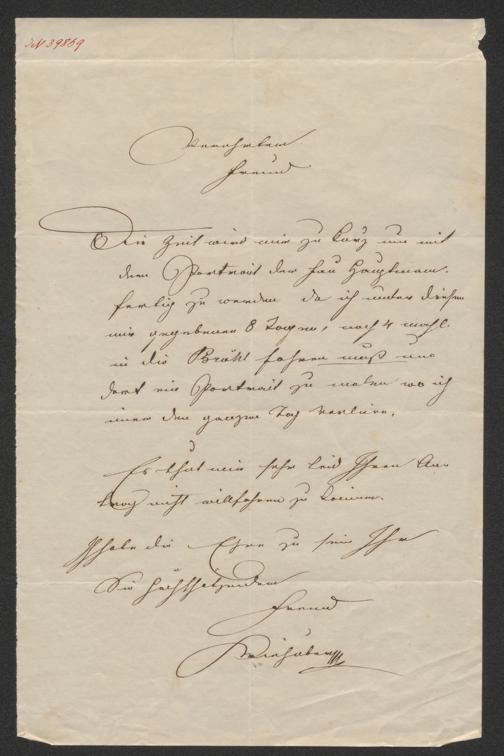 IN 39869
Verehrtem
Freund
Die Zeit wird mir zu kurz um mit
dem Portrait der Frau Hauptmann.
fertig zu werden da ich unter diesen
mir gegebenen 8 Tagen, noch 4 mahl.
in die Brühl fahren muß und
dort ein Portrait zu malen wo ich
imer den ganzen Tag verliere.
Es thut mir sehr leid Ihren An
trag nicht willfahren zu könen.
Ich habe die Ehre zu sein Ihr
Sie hochschätzender
Freund
Kriehuber